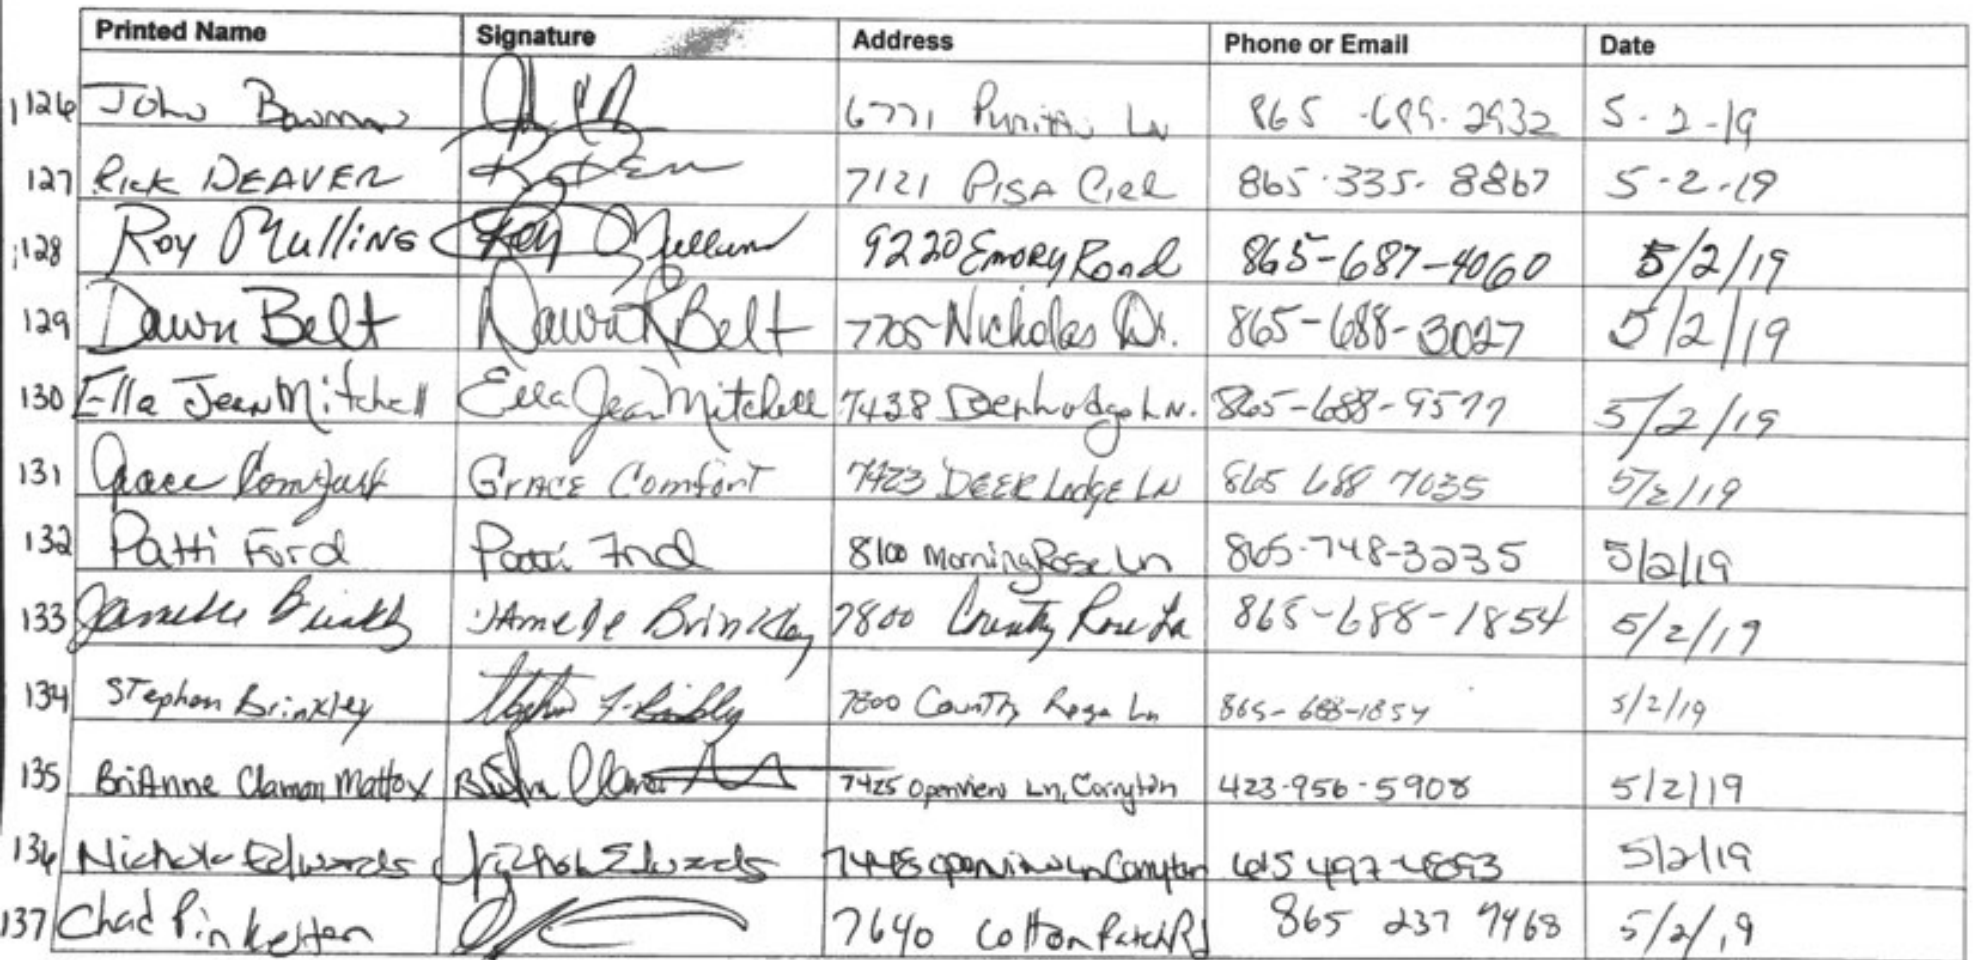 Printed Name Signature Address Phone or Email Date
126 John 6771 Ln 865 2932 5-2-19
127 Rick DEAVER 7121 PISA Circl 865-335-8867 5-2-19
128 Roy Mullins Roy Mullins 9220 Emory Road 865-687-4060 5/2/19
129 Dawn Belt Dawn R Belt 7705 Nicholas Dr. 865-688-3027 5/2/19
130 Ella Jean Mitchell Ella Jean Mitchell 7438 LN. 865-688-9577 5/2/19
131 Grace Comfort GrACE Comfort 7423 DEER Lodge LN 865 688 7035 5/2/19
132 Patti Ford Patti Ford 8100 Morning Rose Ln 865-748-3235 5/2/19
133 Brinkley Brinkley 7800 Country Rose La 865-688-1854 5/2/19
134 Stephen Brinkley 7800 Country Ln 865-688-1854 5/2/19
135 BriAnne Clamon Mattox 7425 Openview Ln, Corryton 423-956-5908 5/2/19
136 Edwards Edwards Openview Ln Corryton 5/2/19
137 Chad Pinkerton 7640 Cotton Patch Rd 865 237 9468 5/2/19